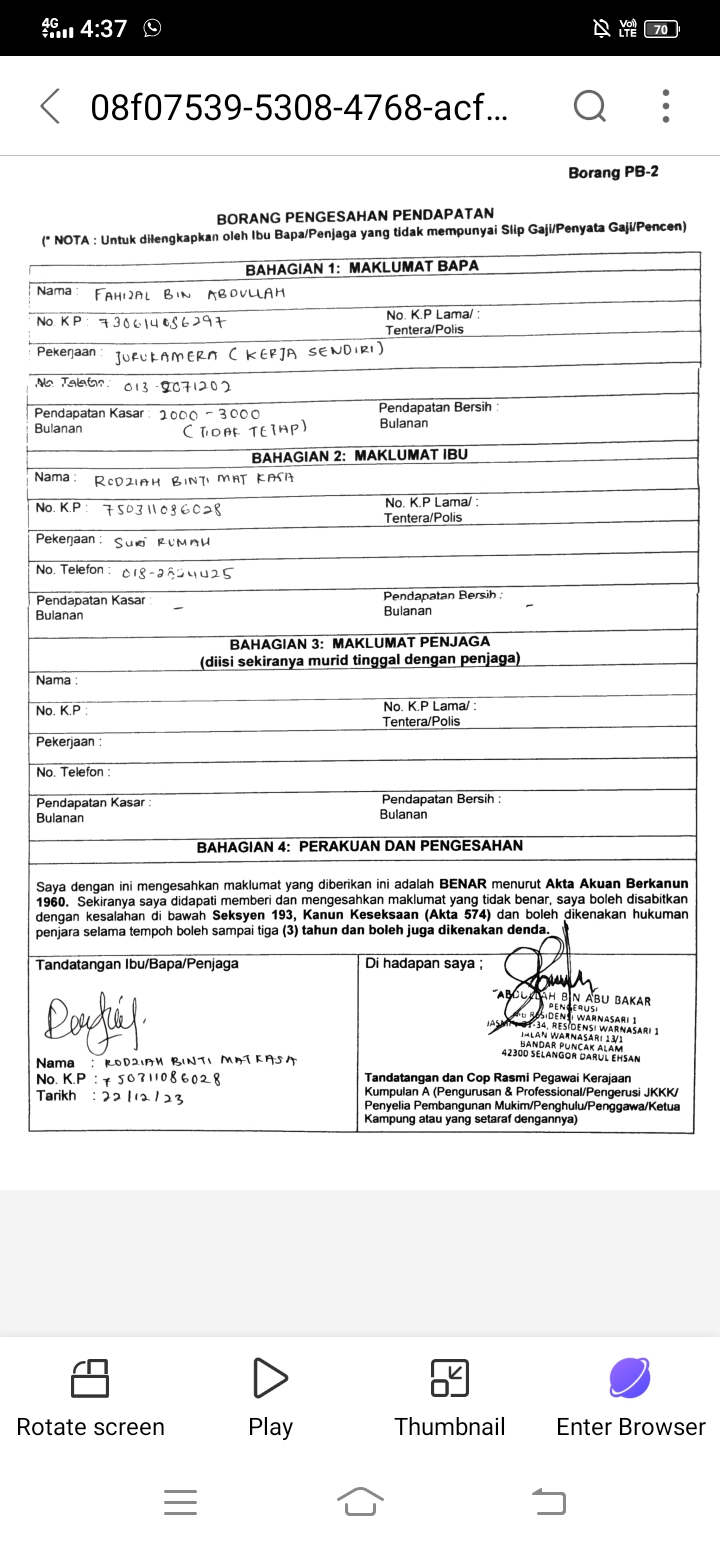 4G 4:37 Vo) LTE 70
08f07539-5308-4768-acf...
Borang PB-2
BORANG PENGESAHAN PENDAPATAN
(* NOTA : Untuk dilengkapkan oleh Ibu Bapa/Penjaga yang tidak mempunyai Slip Gaji/Penyata Gaji/Pencen)
BAHAGIAN 1: MAKLUMAT BAPA
Nama : FAHIZAL BIN ABDULLAH
No. KP : 730614086297 No. K.P Lama/ :
Tentera/Polis
Pekerjaan : JURUKAMERA (KERJA SENDIRI)
No. Telefon: 013-9071202
Pendapatan Kasar : 2000 - 3000 Pendapatan Bersih :
Bulanan (TIDAK TETAP) Bulanan
BAHAGIAN 2: MAKLUMAT IBU
Nama : RODZIAH BINTI MAT KASA
No. K.P : 750311086028 No. K.P Lama/ :
Tentera/Polis
Pekerjaan : SURI RUMAH
No. Telefon :
Pendapatan Kasar : - Pendapatan Bersih : -
Bulanan Bulanan
BAHAGIAN 3: MAKLUMAT PENJAGA
(diisi sekiranya murid tinggal dengan penjaga)
Nama :
No. K.P : No. K.P Lama/ :
Tentera/Polis
Pekerjaan :
No. Telefon :
Pendapatan Kasar : Pendapatan Bersih :
Bulanan Bulanan
BAHAGIAN 4: PERAKUAN DAN PENGESAHAN
Saya dengan ini mengesahkan maklumat yang diberikan ini adalah BENAR menurut Akta Akuan Berkanun
1960. Sekiranya saya didapati memberi dan mengesahkan maklumat yang tidak benar, saya boleh disabitkan
dengan kesalahan di bawah Seksyen 193, Kanun Keseksaan (Akta 574) dan boleh dikenakan hukuman
penjara selama tempoh boleh sampai tiga (3) tahun dan boleh juga dikenakan denda.
Tandatangan Ibu/Bapa/Penjaga
Nama : RODZIAH BINTI MAT KASA
No. K.P : 750311086028
Tarikh : 22/12/23
Di hadapan saya ;
ABDULLAH BIN ABU BAKAR
PENGERUSI
RESIDENSI WARNASARI 1
34, RESIDENSI WARNASARI 1
JALAN WARNASARI 13/1
BANDAR PUNCAK ALAM
42300 SELANGOR DARUL EHSAN
Tandatangan dan Cop Rasmi Pegawai Kerajaan
Kumpulan A (Pengurusan & Professional/Pengerusi JKKK/
Penyelia Pembangunan Mukim/Penghulu/Penggawa/Ketua
Kampung atau yang setaraf dengannya)
Rotate screen Play Thumbnail Enter Browser